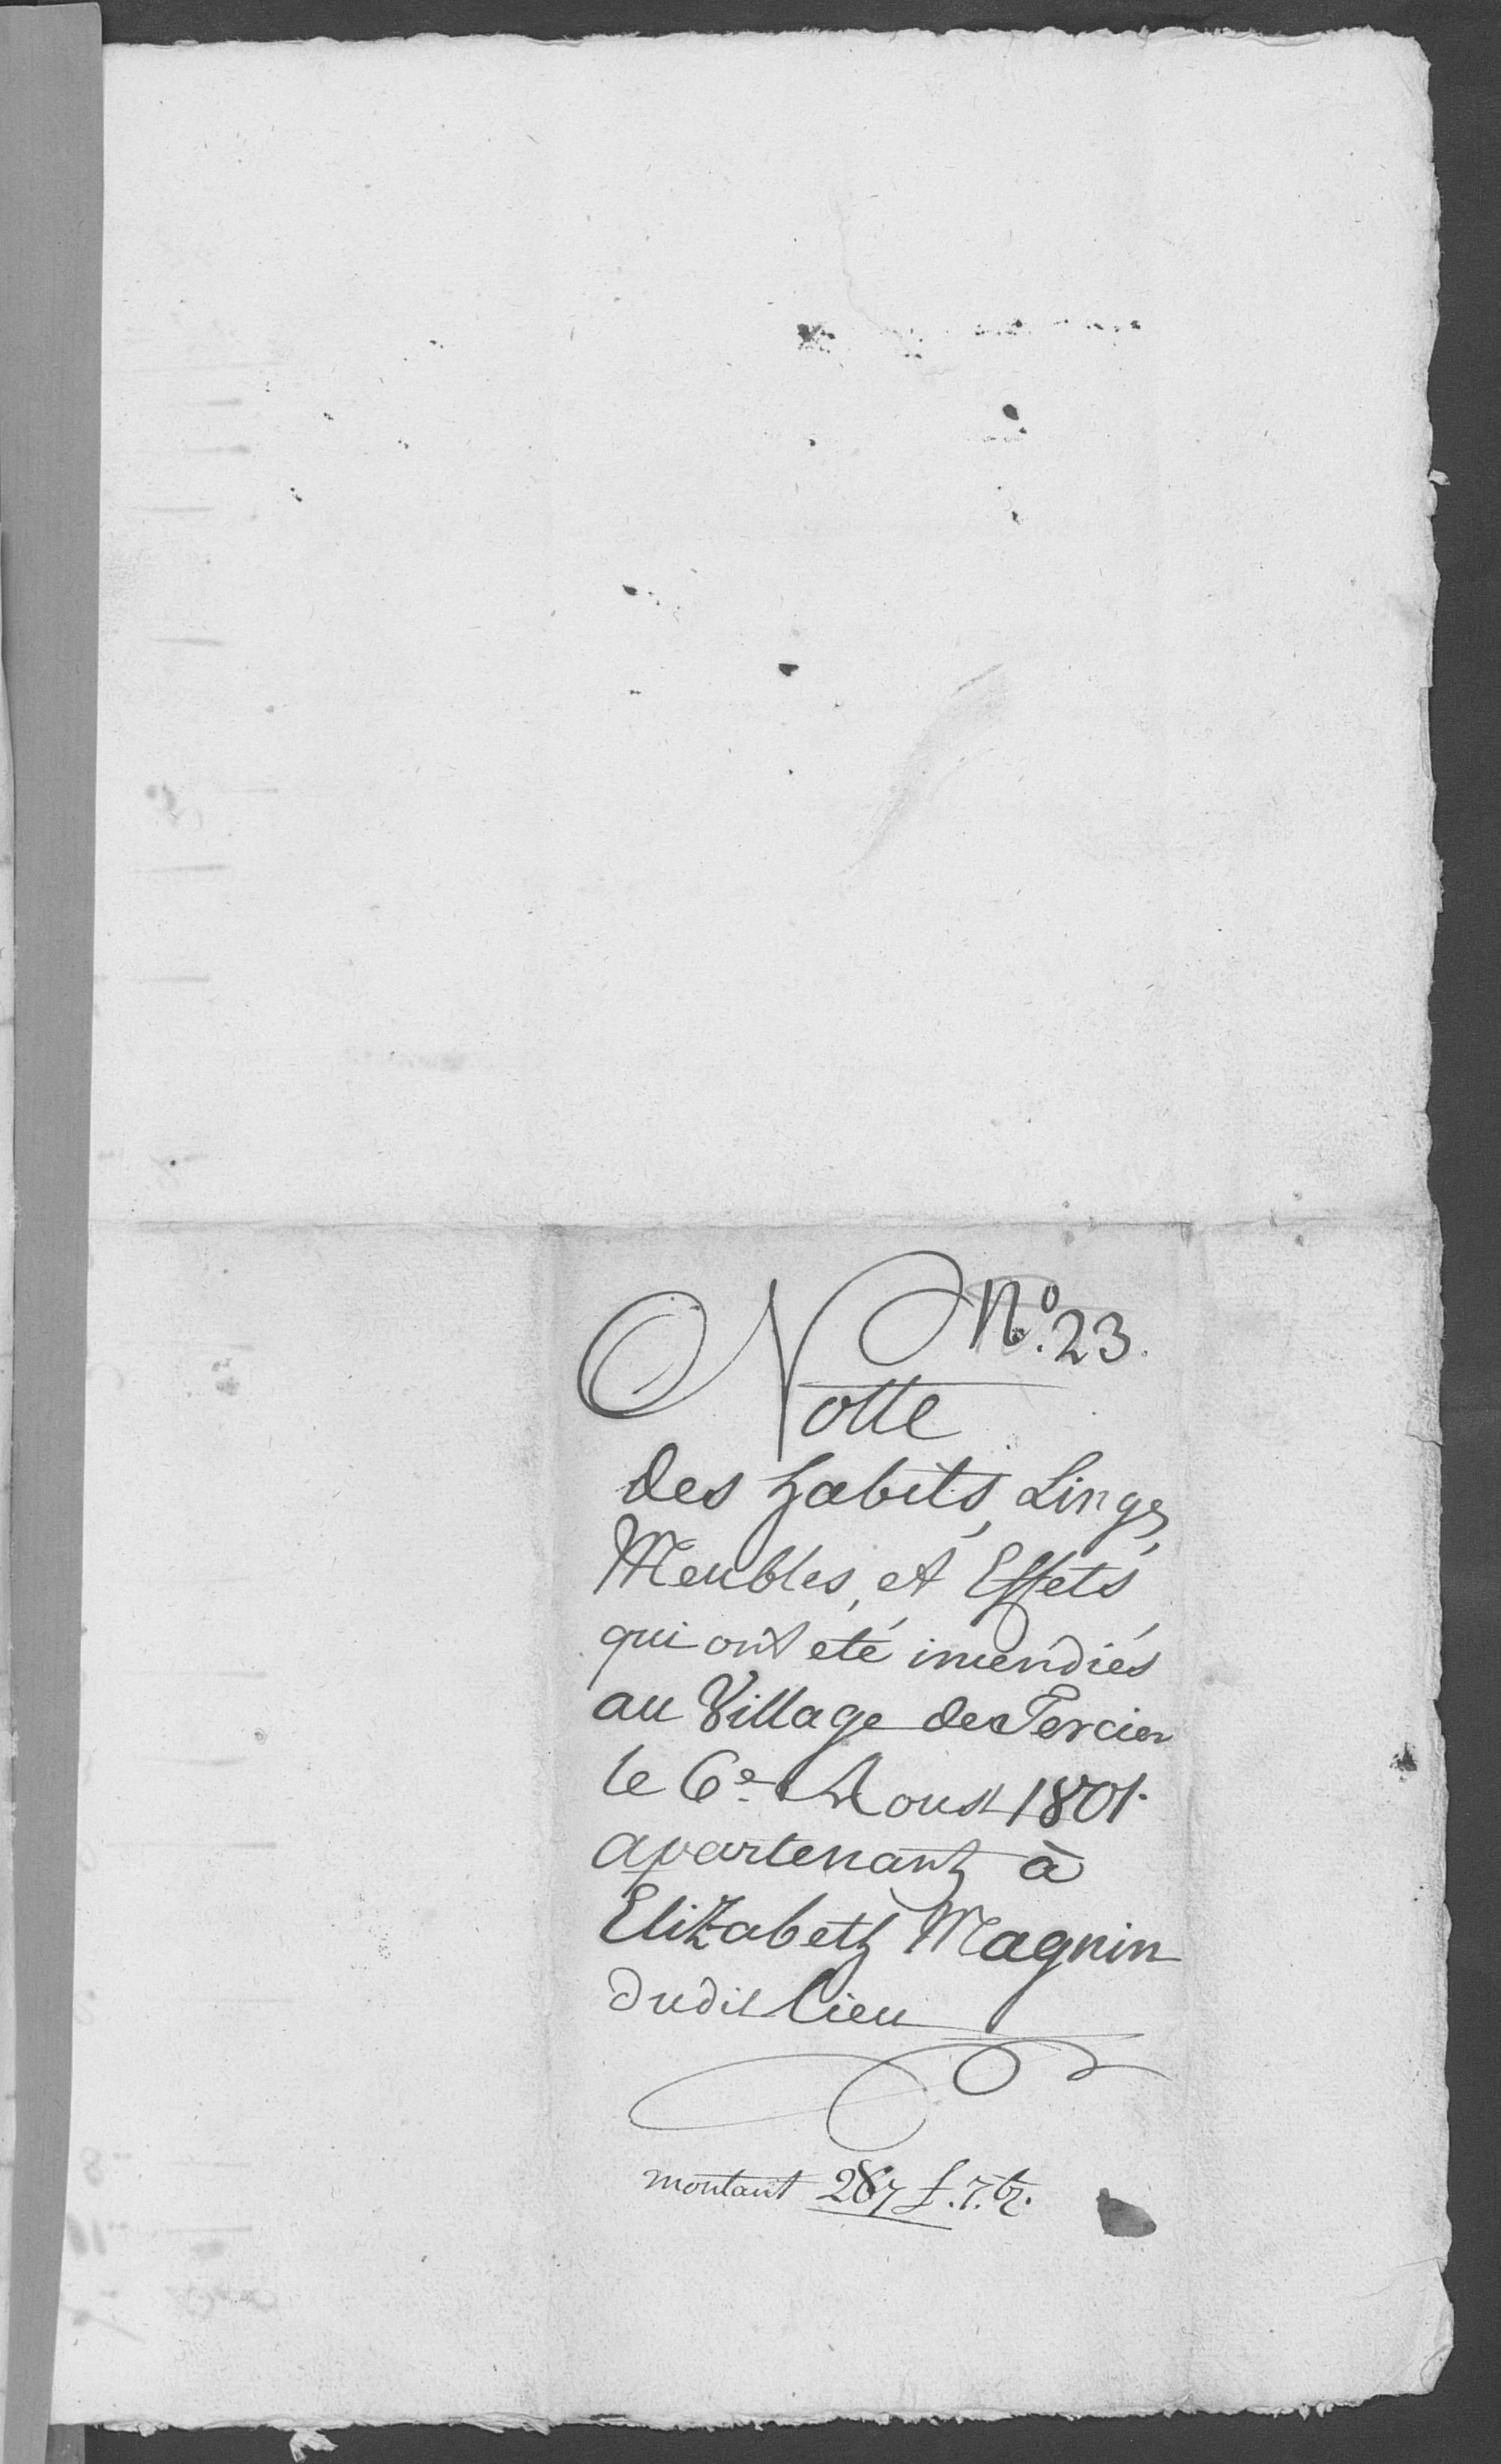 No. 23.
Notte
des habits, Linge,
Meubles, et Effets
qui ont eté incendiés
au Village de Tercier
le 6e. Aoust 1801.
apartenant à
Elizabeth Magnin
dudit lieu
montant 267 £. 7. bz.